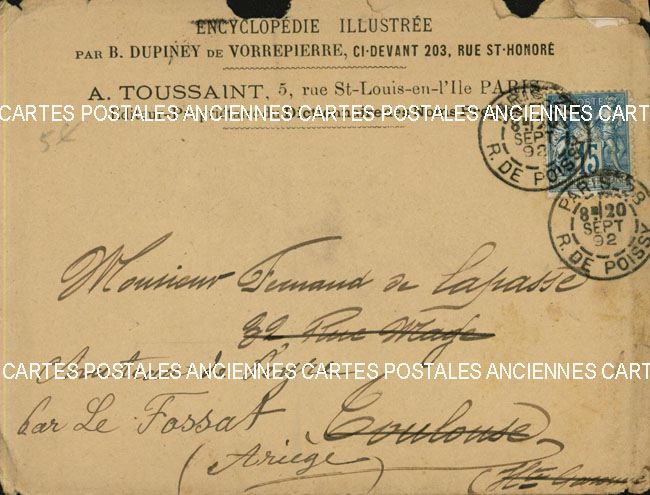 ENCYCLOPÉDIE ILLUSTRÉE
PAR B. DUPINEY DE VORREPIERRE, CI-DEVANT 203, RUE ST-HONORÉ
A. TOUSSAINT, 5, rue St-Louis-en-l'Ile PARIS
CARTES POSTALES ANCIENNES CARTES POSTALES ANCIENNES CART
POSTES
15
SEPT
92
R. DE POISSY
PARIS
8 20
SEPT
92
R. DE POISSY
Monsieur Fernand de Lapasse
32 Rue Mage
CARTES POSTALES ANCIENNES CARTES POSTALES ANCIENNES CART
par Le Fossat Toulouse
(Ariège)